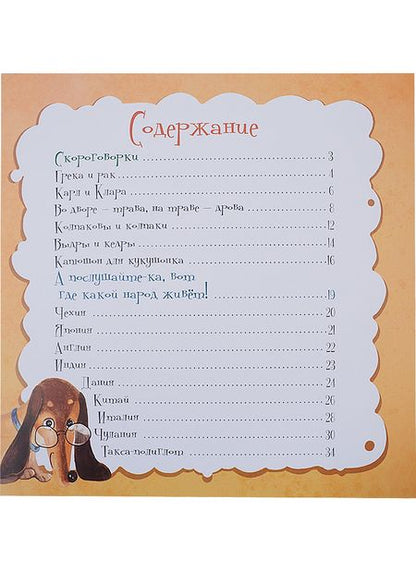 Содержание
Скороговорки 3
Грека и рак 4
Карл и Клара 6
Во дворе — трава, на траве — дрова 8
Колпаковы и колпаки 12
Выдры и кедры 14
Капюшон для кукушонка 16
А послушайте-ка, вот
где какой народ живёт! 19
Чехия 20
Япония 21
Англия 22
Индия 23
Дания 24
Китай 26
Италия 28
Чулания 30
Такса-полиглот 34